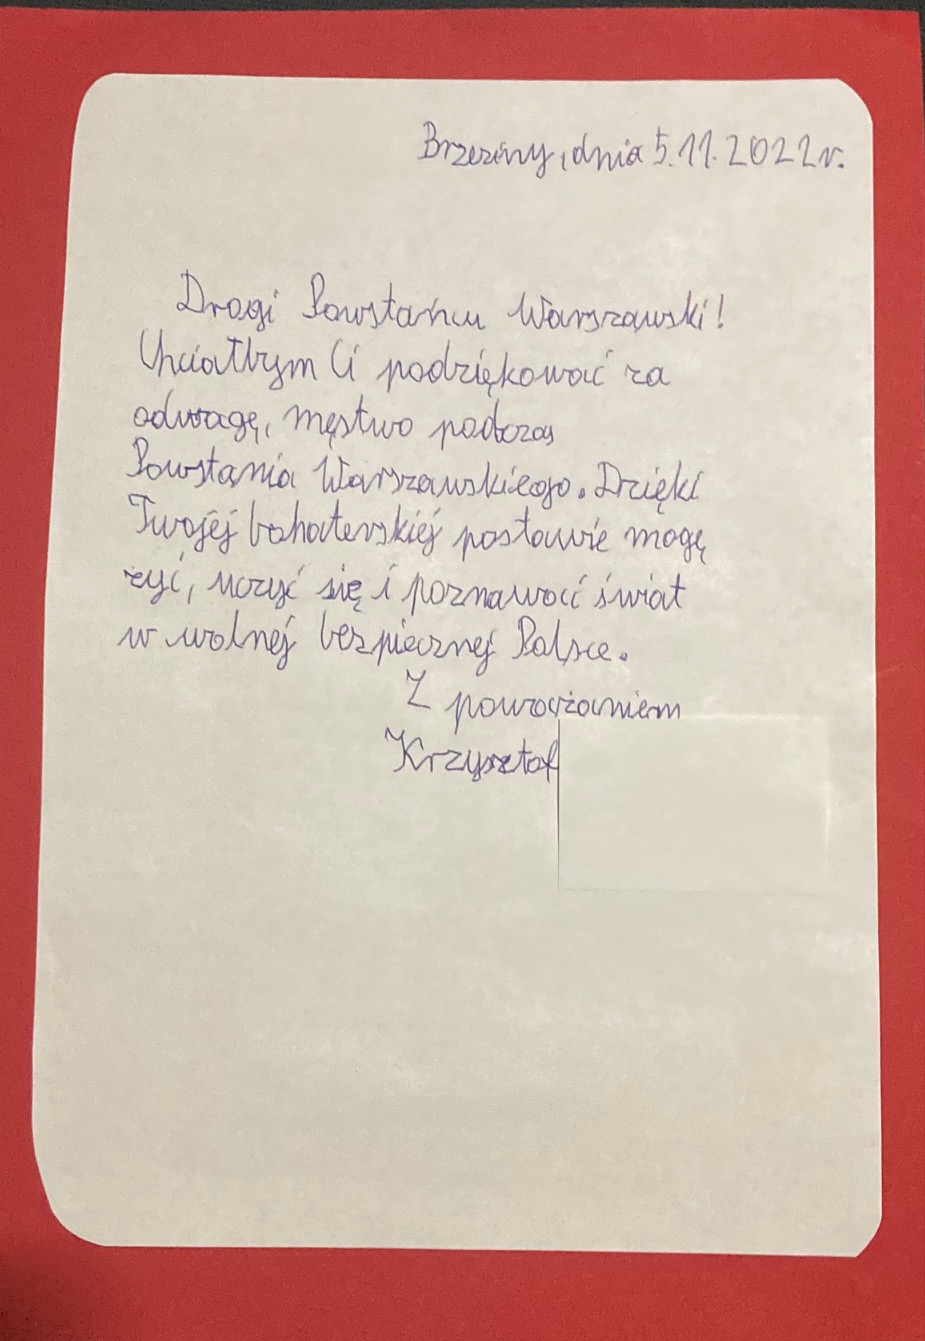 Brzeziny, dnia 5.11.2022r.
Drogi Powstańcu Warszawski!
Chciałbym Ci podziękować za
odwagę, męstwo podczas
Powstania Warszawskiego. Dzięki
Twojej bohaterskiej postawie mogę
żyć, uczyć się i poznawać świat
w wolnej bezpiecznej Polsce.
Z poważaniem
Krzysztof